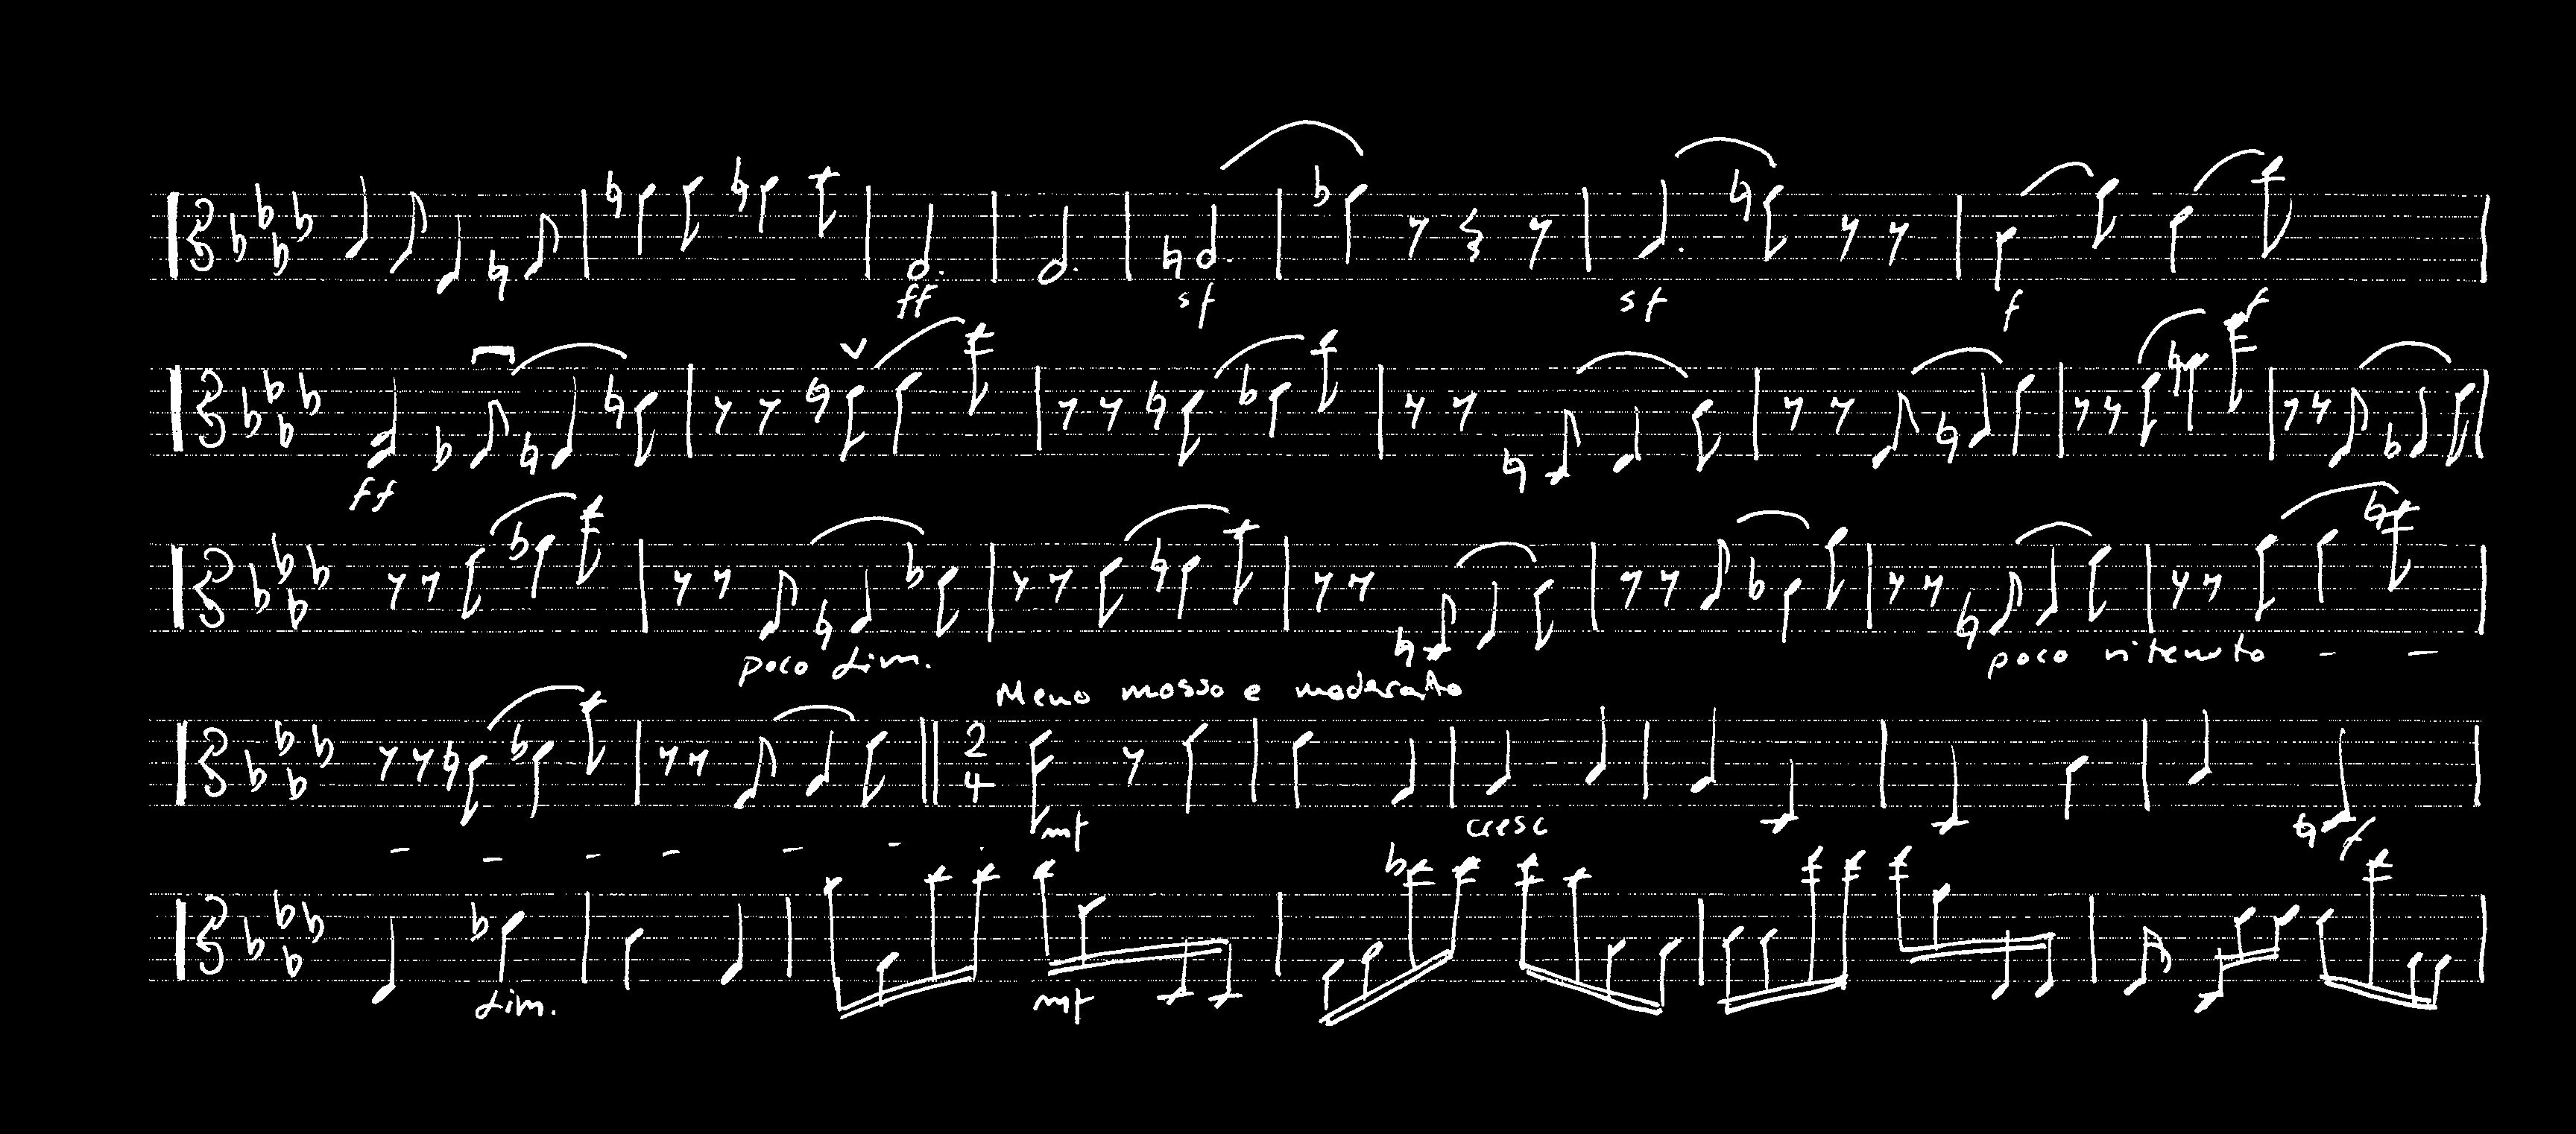 ff sf sf f f
ff
poco dim. poco ritenuto - -
Meno mosso e moderato
2
4
mf cresc f
- - - - - - .
dim. mf